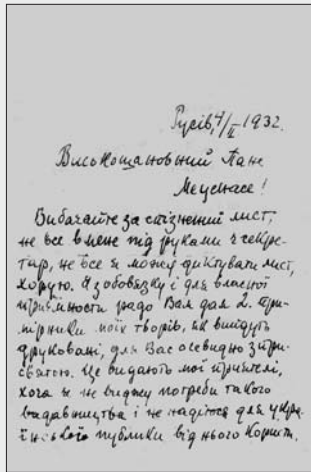 Русів, 4/II 1932.
Високошановний Пане
Меценасе!
Вибачайте за спізнений лист,
не все в мене під руками є секре-
тар, не все я можу диктувати лист,
хорую. З обовязку і для власної
приємности радо Вам дам 2. при-
мірники моїх творів, як вийдуть
друковані, для Вас очевидно з при-
святою. Це видають мої приятелі,
хоча я не виджу потреби такого
видавництва і не надіюся для укра-
їнської публики від нього користи.